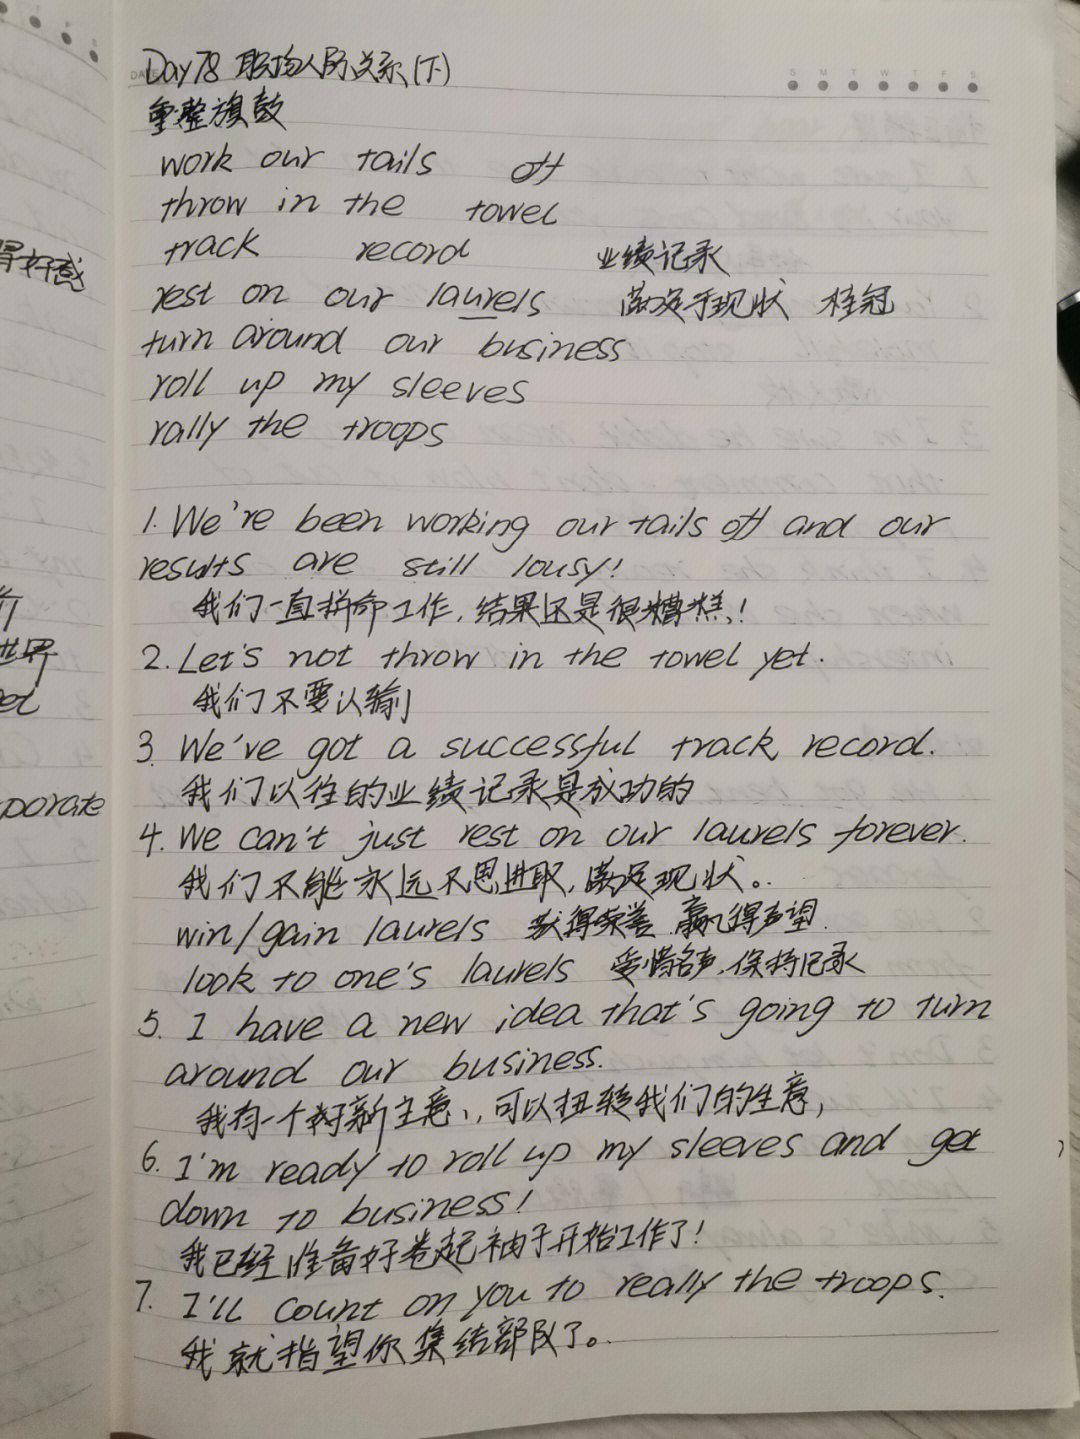 Day 78 职场人际关系(下)
重整旗鼓
work our tails off
throw in the towel
track record 业绩记录
rest on our laurels 满足于现状 桂冠
turn around our business
roll up my sleeves
rally the troops
1. We're been working our tails off and our
results are still lousy!
我们一直拼命工作,结果还是很糟糕!
2. Let's not throw in the towel yet.
我们不要认输
3. We've got a successful track record.
我们以往的业绩记录是成功的
4. We can't just rest on our laurels forever.
我们不能永远不思进取,满足现状。
win/gain laurels 获得荣誉 赢得声望
look to one's laurels 爱惜名声,保持记录
5. I have a new idea that's going to turn
around our business.
我有一个好新主意,可以扭转我们的生意,
6. I'm ready to roll up my sleeves and get
down to business!
我已经准备好卷起袖子开始工作了!
7. I'll count on you to really the troops.
我就指望你集结部队了。
好感
世界
porate